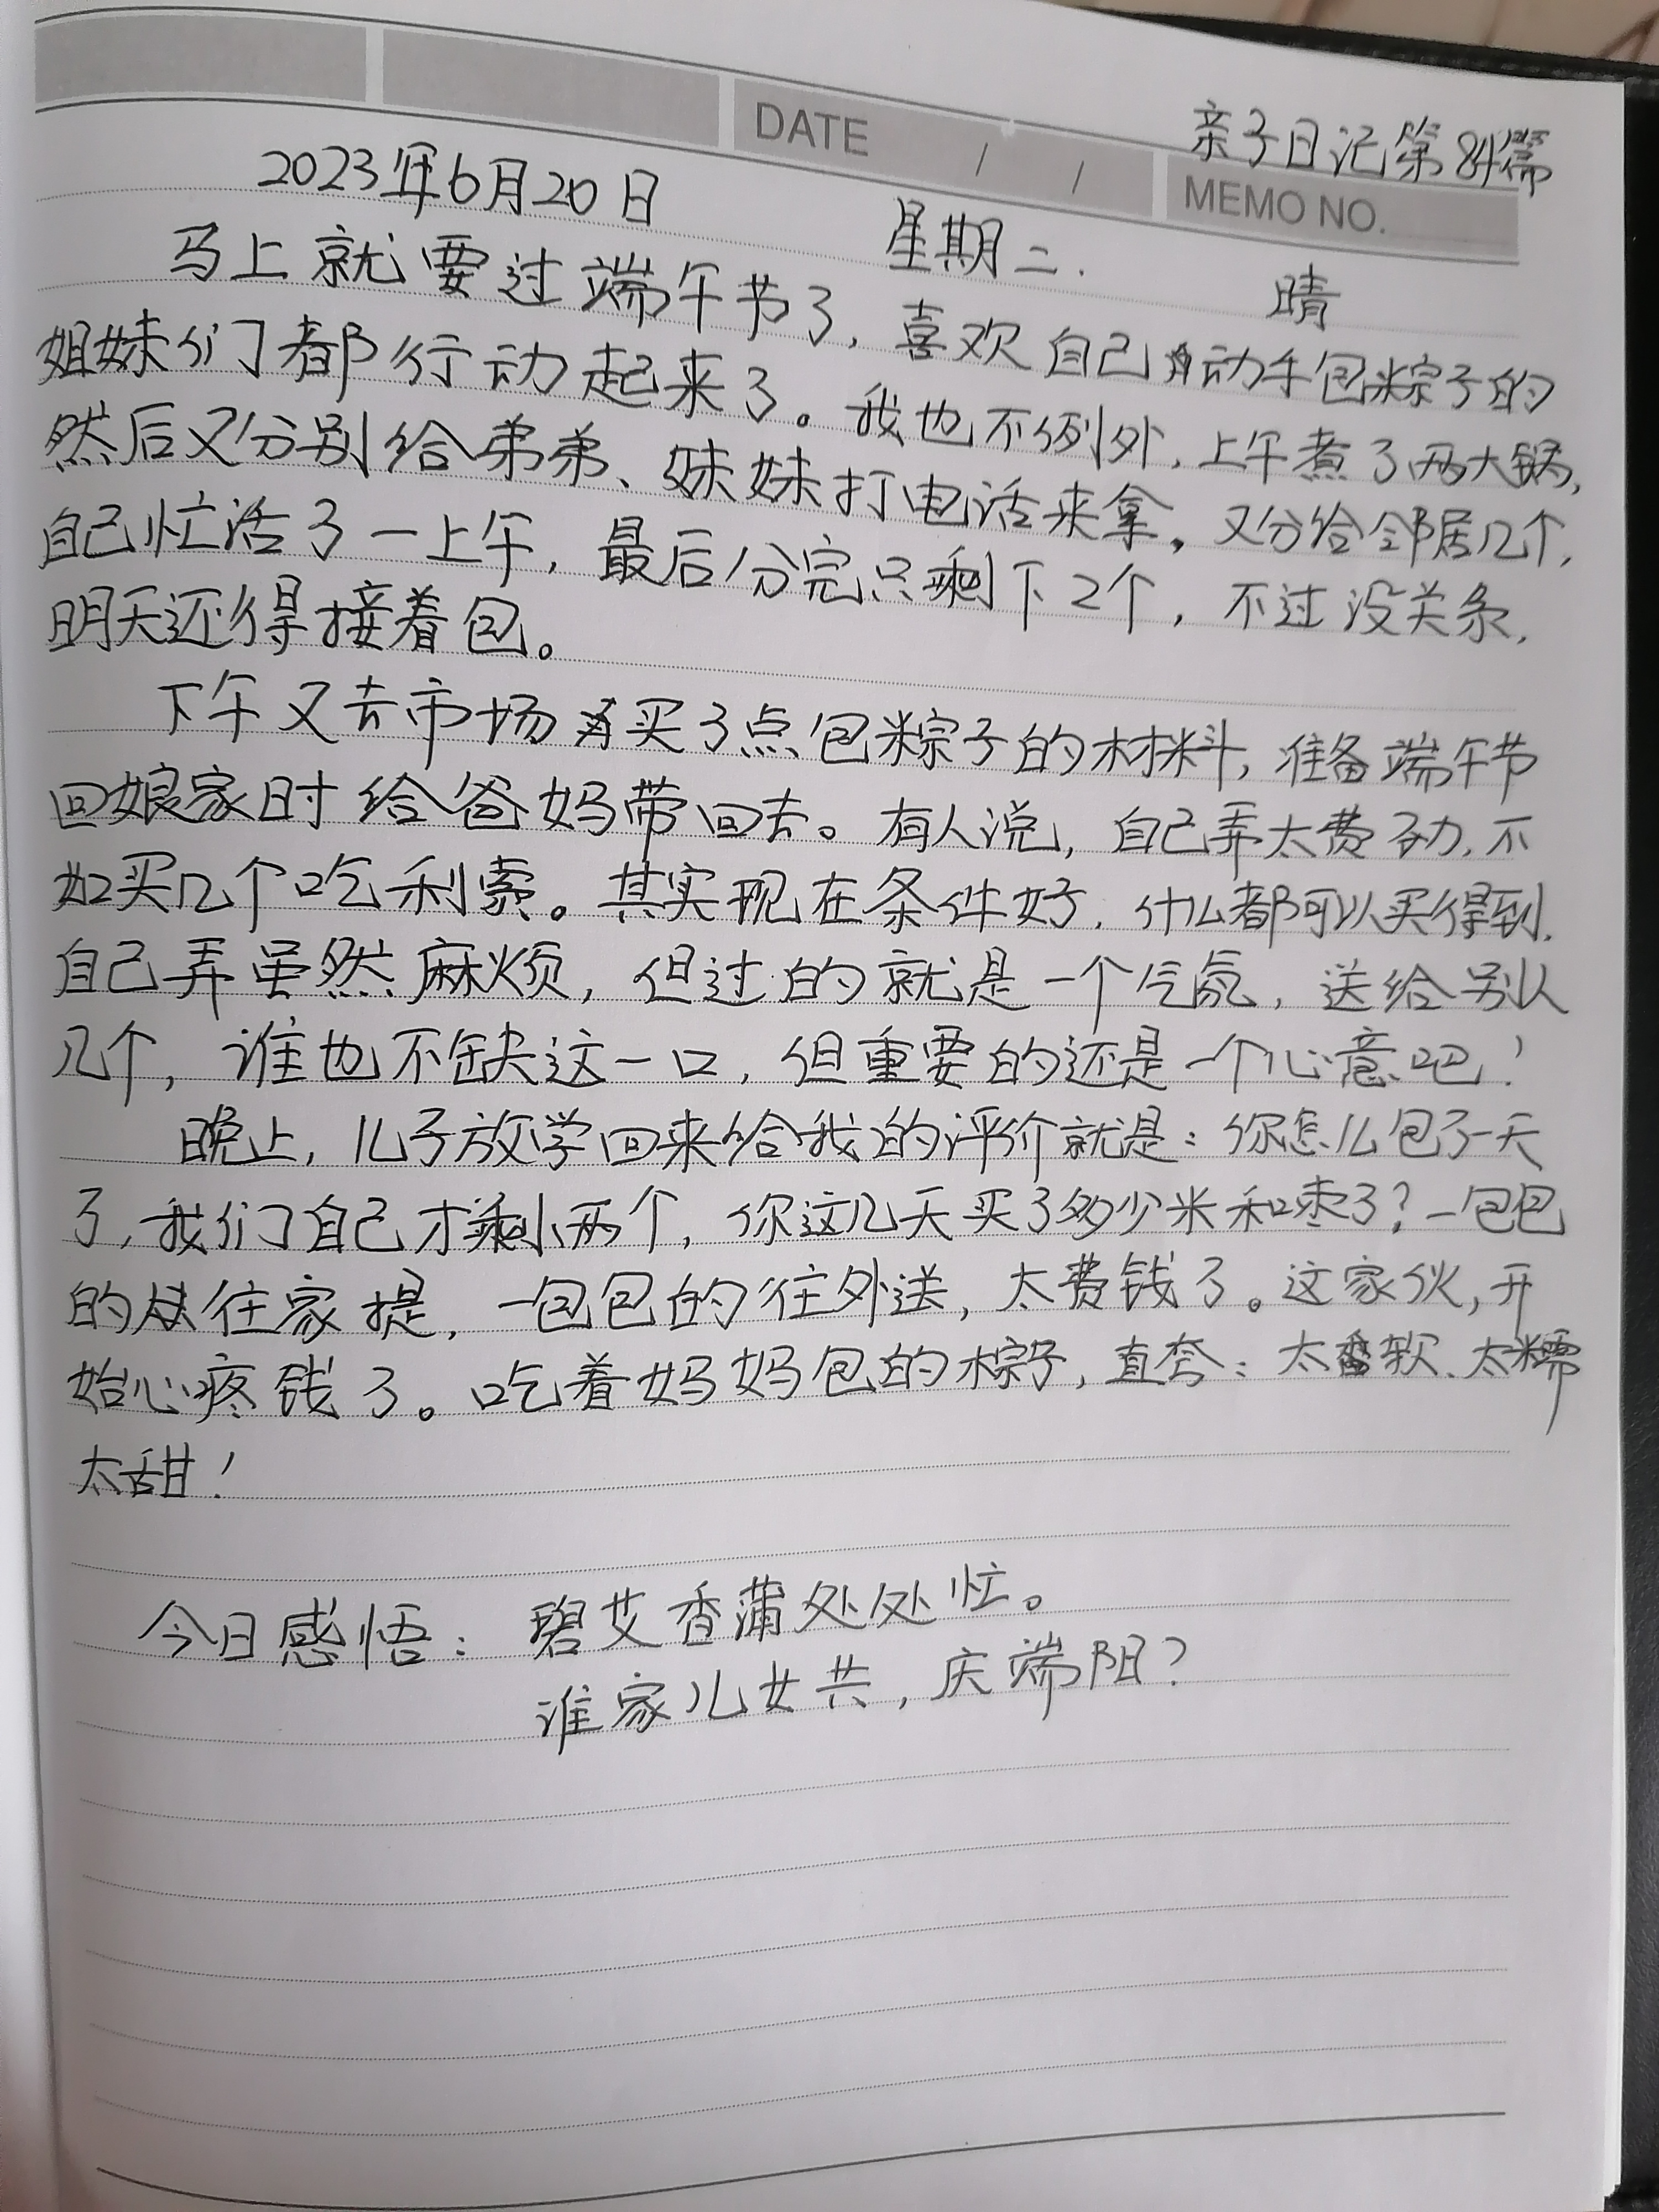 亲子日记第84篇
DATE / /
MEMO NO.
2023年6月20日 星期二. 晴
马上就要过端午节了,喜欢自己动手包粽子的
姐妹们都行动起来了。我也不例外,上午煮了两大锅,
然后又分别给弟弟、妹妹打电话来拿。又分给邻居几个,
自己忙活了一上午,最后分完只剩下2个,不过没关系,
明天还得接着包。
下午又去市场买了点包粽子的材料,准备端午节
回娘家时给爸妈带回去。有人说,自己弄太费劲,不
如买几个吃利索。其实现在条件好,什么都可以买得到.
自己弄虽然麻烦,但过的就是一个气氛,送给别人
几个,谁也不缺这一口,但重要的还是一个心意吧!
晚上,儿子放学回来给我的评价就是:你怎么包了一天
了,我们自己才剩两个,你这几天买了多少米和枣了?一包包
的往家提,一包包的往外送,太费钱了。这家伙,开
始心疼钱了。吃着妈妈包的粽子,直夸:太软、太糯
太甜!
今日感悟:碧艾香蒲处处忙。
谁家儿女共,庆端阳?